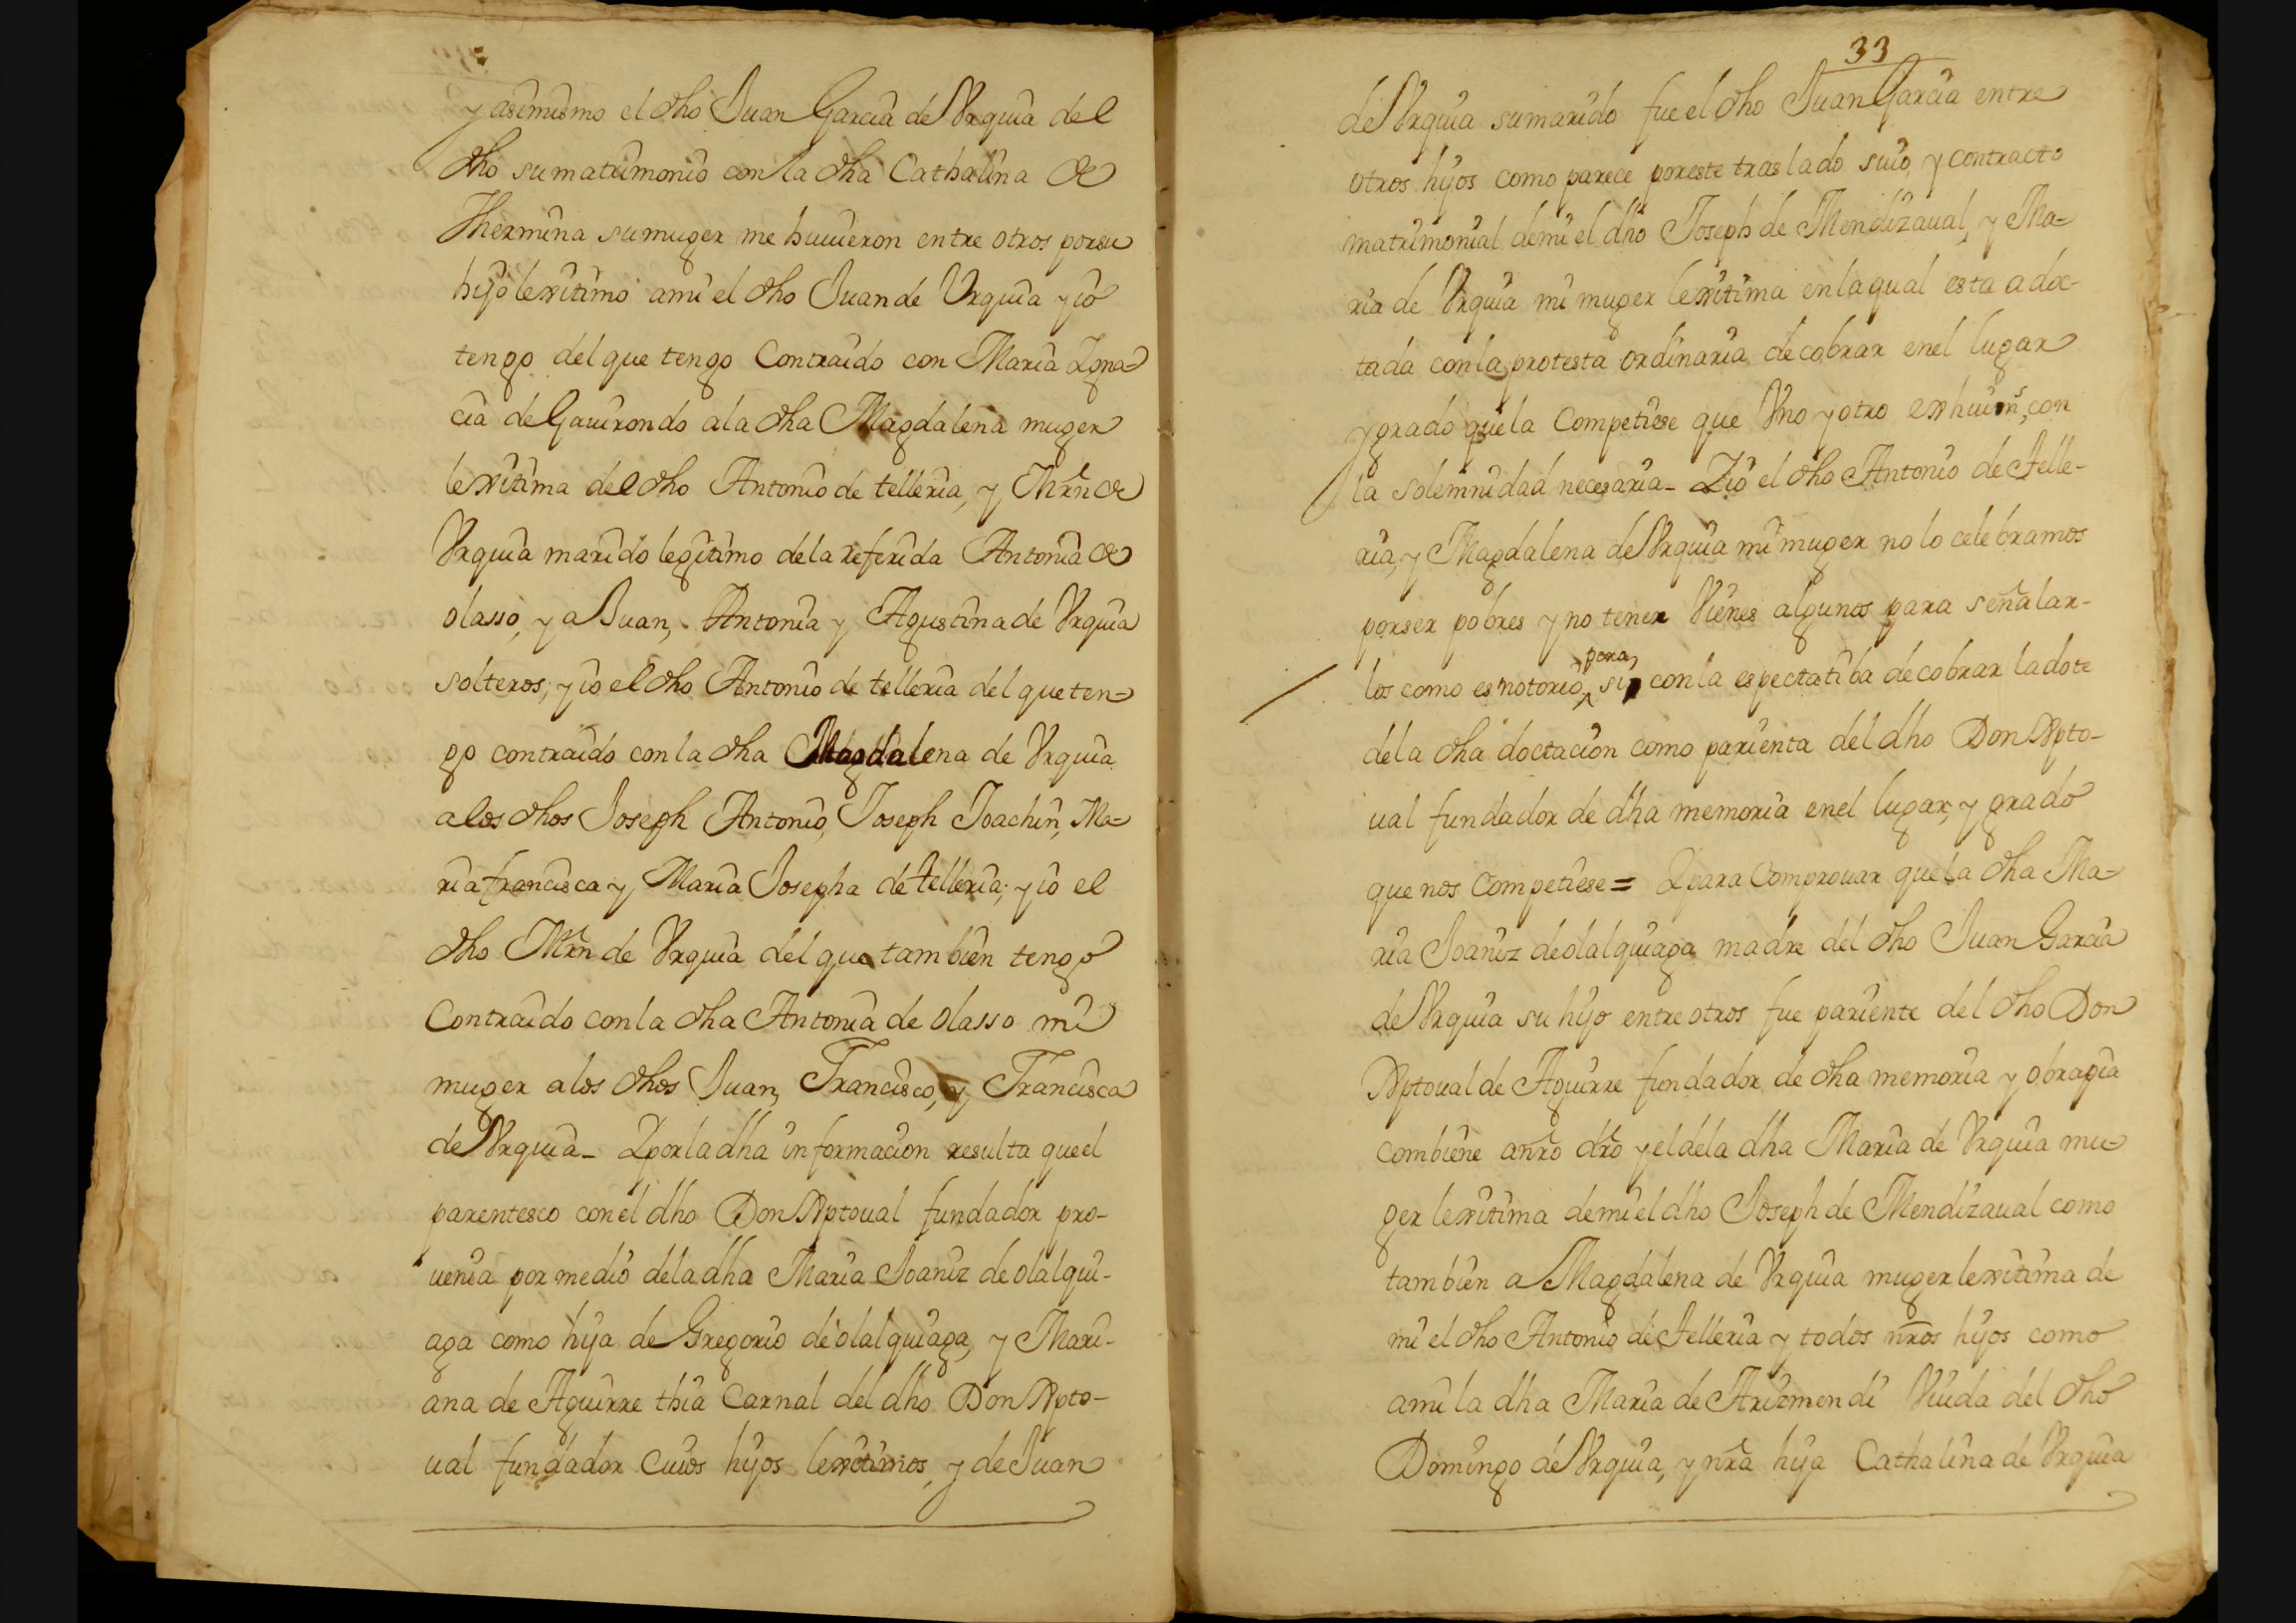 y asimismo el dho Juan Garcia de Vrquia del
dho su matrimonio con la dha Cathalina de
Hermina su muger me huuieron entre otros por su
hijo lexitimo a mi el dho Juan de Vrquia y io
tengo del que tengo Contraido con Maria Igna-
cia de Gauirondo a la dha Magdalena muger
lexitima del dho Antonio de telleria, y Mrn de
Vrquia marido legitimo de la referida Antonia de
olasso, y a Juan, Antonia y Agustina de Vrquia
solteros; y io el dho Antonio de telleria del que ten-
go contraido con la dha Magdalena de Vrquia
a los dhos Joseph Antonio, Joseph Joachin, Ma-
ria francisca y Maria Josepha de telleria; y io el
dho Mrn de Vrquia del que tambien tengo
Contraido con la dha Antonia de olasso mi
muger a los dhos Juan, Francisco, y Francisca
de Vrquia_ I por la dha informacion resulta que el
parentesco con el dho Don Xptoual fundador pro-
uenia por medio de la dha Maria Joaniz de olalqui-
aga como hija de Gregorio de olalquiaga, y Mari-
ana de Aguirre thia Carnal del dho Don Xpto-
ual fundador Cuios hijos lexitimos, y de Juan
33
de Vrquia su marido fue el dho Juan Garcia entre
otros hijos como parece por este traslado suio, y contracto
matrimonial de mi el dho Joseph de Mendizaual, y Ma-
ria de Vrquia mi muger lexitima en la qual esta adoc-
tada con la protesta ordinaria de cobrar en el lugar
y grado que la Competiese que Vno y otro exhiuims, con
la solemnidad necesaria_ I io el dho Antonio de Telle-
ria, y Magdalena de Vrquia mi muger no lo celebramos
por ser pobres y no tener Vienes algunos para señalar-
los como es notorio, pera, si, con la espectatiba de cobrar la dote
de la dha doctacion como parienta del dho Don Xpto-
ual fundador de dha memoria en el lugar, y grado
que nos Competiese = I para Comprouar que la dha Ma-
ria Joaniz de olalquiaga madre del dho Juan Garcia
de Vrquia su hijo entre otros fue pariente del dho Don
Xptoual de Aguirre fundador de dha memoria y obra pia
combiene a nro dro y el de la dha Maria de Vrquia mu-
ger lexitima de mi el dho Joseph de Mendizaual como
tambien a Magdalena de Vrquia muger lexitima de
mi el dho Antonio de Telleria y todos nros hijos como
a mi la dha Maria de Arizmendi Viuda del dho
Domingo de Vrquia, y nra hija Cathalina de Vrquia